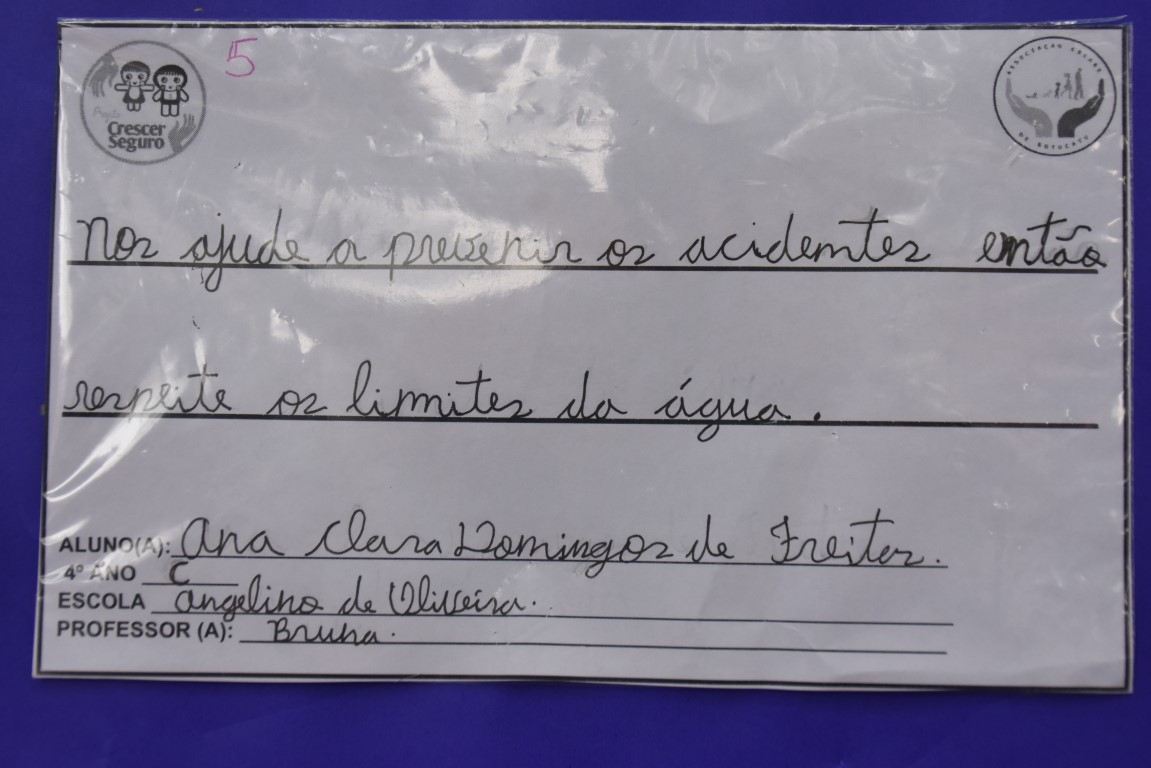 5
Projeto
Crescer
Seguro
ASSOCIAÇÃO
DE BOTUCATU
Nos ajude a prevenir os acidemtes emtão
respeite os limites da água.
ALUNO(A): Ana Clara Domingos de Freitas.
4º ANO C
ESCOLA Angelino de Oliveira.
PROFESSOR (A): Bruna.